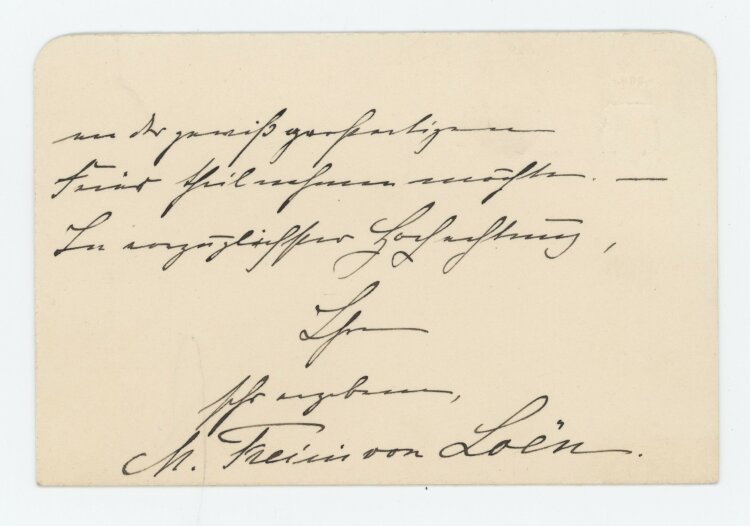 an der gewiß großartigen
Feier theilnehmen möchte. —
In vorzüglichster Hochachtung,
Ihre
sehr ergebene,
M. Freiin von Loën.